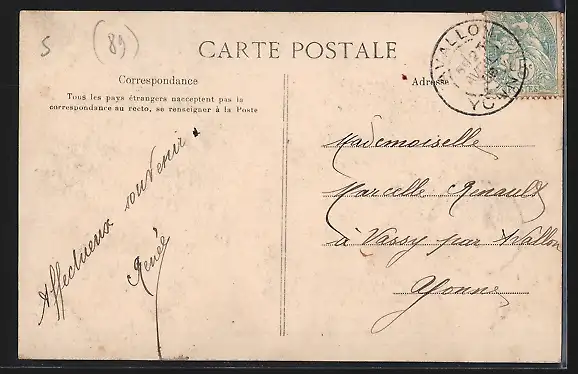 S (89)
CARTE POSTALE
Correspondance
Tous les pays étrangers nacceptent pas la
correspondance au recto, se renseigner à la Poste
Affectueux souvenir
Renée
Adresse
AVALLON
YONNE
Mademoiselle
Marcelle Renault
à Vassy par Avallon
Yonne